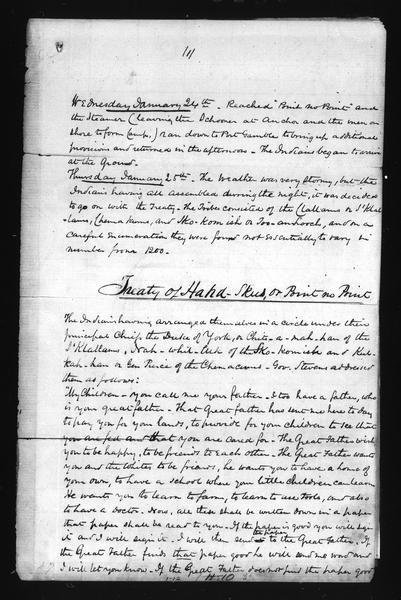 11
Wednesday January 24th. Reached "Point no Point" and
the Steamer (leaving the Schooner at Anchor and the men on
shore to form Camp,) ran down to Port Gamble to bring up additional
provisions and returned in the afternoon - The Indians began to arrive
at the Ground.
Thursday January 25th. The Weather was very stormy, but the
Indians having all assembled during the night, it was decided
to go on with the Treaty - The Tribes consisted of the Clallams or S'Klal-
-lams, Chemakums, and Sko-komish or Too-anhooch, and on a
careful enumeration they were found not essentially to vary in
number from 1200.
Treaty of Hahd-Skus, or Point no Point
The Indians having arranged themselves in a circle under their
principal Chiefs, the Duke of York, or Chits-a-mah-han of the
S'Klallams, Nah-whil-luk of the Sko-komish and Kul-
kah-han or Gen Pierce of the Chemacums - Gov. Stevens addressed
them as follows:
"My Children - you call me your father - I too have a father, who
is your great father - That Great father has sent me here to day
to pay you for your lands, to provide for your children to see that
you are fed and that you are cared for - The Great Father wishes
you to be happy, to be friends to each other - The Great Father wants
you and the Whites to be friends, he wants you to have a home of
your own, to have a school where your little children can learn
He wants you to learn to farm, to learn to use tools, and also
to have a Doctor - Now, all this shall be written down in a paper
that paper shall be read to you - If the paper is good you will sign
it and I will sign it - I will then send the paper to the Great Father. If
the Great Father finds that paper good he will send me word and
I will let you know - If the Great Father does not find the paper good